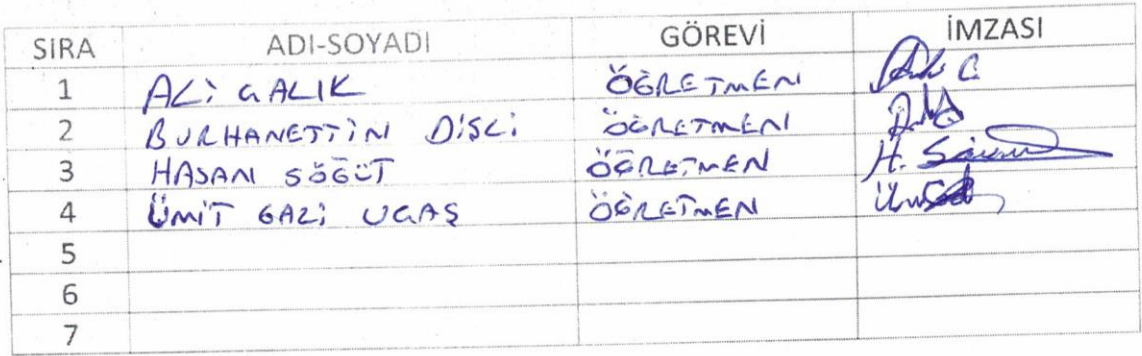 SIRA ADI-SOYADI GÖREVİ İMZASI
1 ALİ GALIK ÖĞRETMEN
2 BURHANETTİN DİSLİ ÖĞRETMEN
3 HASAN SÖĞÜT ÖĞRETMEN H.
4 ÜMİT GAZİ UGAŞ ÖĞRETMEN
5
6
7